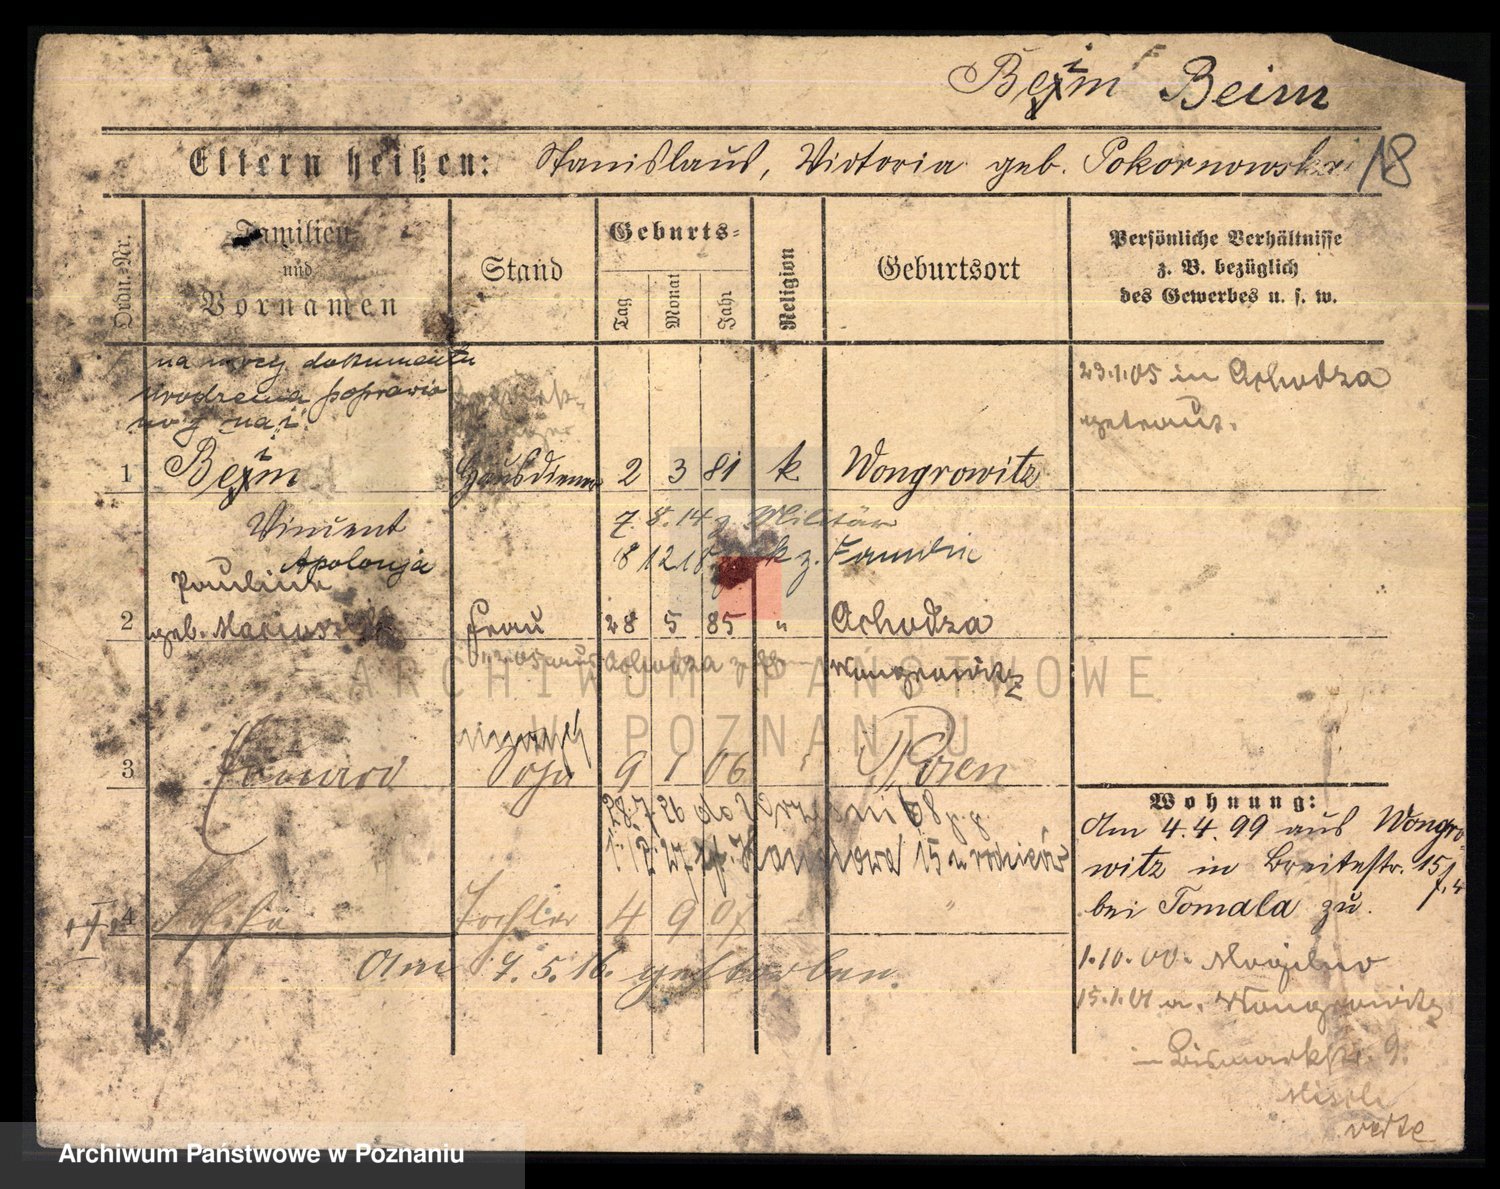 Bejm Beim
Eltern heißen: Stanislaus, Victoria geb. Pokornowski 18
Ordn.-Nr.
Familien
und
Vornamen
Stand
Geburts-
Tag
Monat
Jahr
Religion
Geburtsort
Persönliche Verhältnisse
z. B. bezüglich
des Gewerbes u. s. w.
na mocy dokumentu
urodzenia poprawio
no j na i
23.1.05 in Ochodza
getraut.
1 Bejm Hausdiener 2 3 81 k Wongrowitz
Vincent
7.8.14 z. Militär
8 12 18 k z. Familie
Apolonja
Pauline
2 geb. Frau 28 5 85 " Ochodza
aus Ochodza Wongrowitz
3 Eduard Sohn 9 1 06 Posen
28.7.26 do Wrześni
1.12.27
4 Tochter 4 9 07 "
Am 4.5.16. gestorben.
Wohnung:
Am 4.4.99 aus Wongro-
witz in Breitestr. 15
bei Tomala zu.
1.10.00. Mogilno
15.1.01 a. Wongrowitz
Bismarckstr. 9.
verte
ARCHIWUM PAŃSTWOWE
W POZNANIU
Archiwum Państwowe w Poznaniu